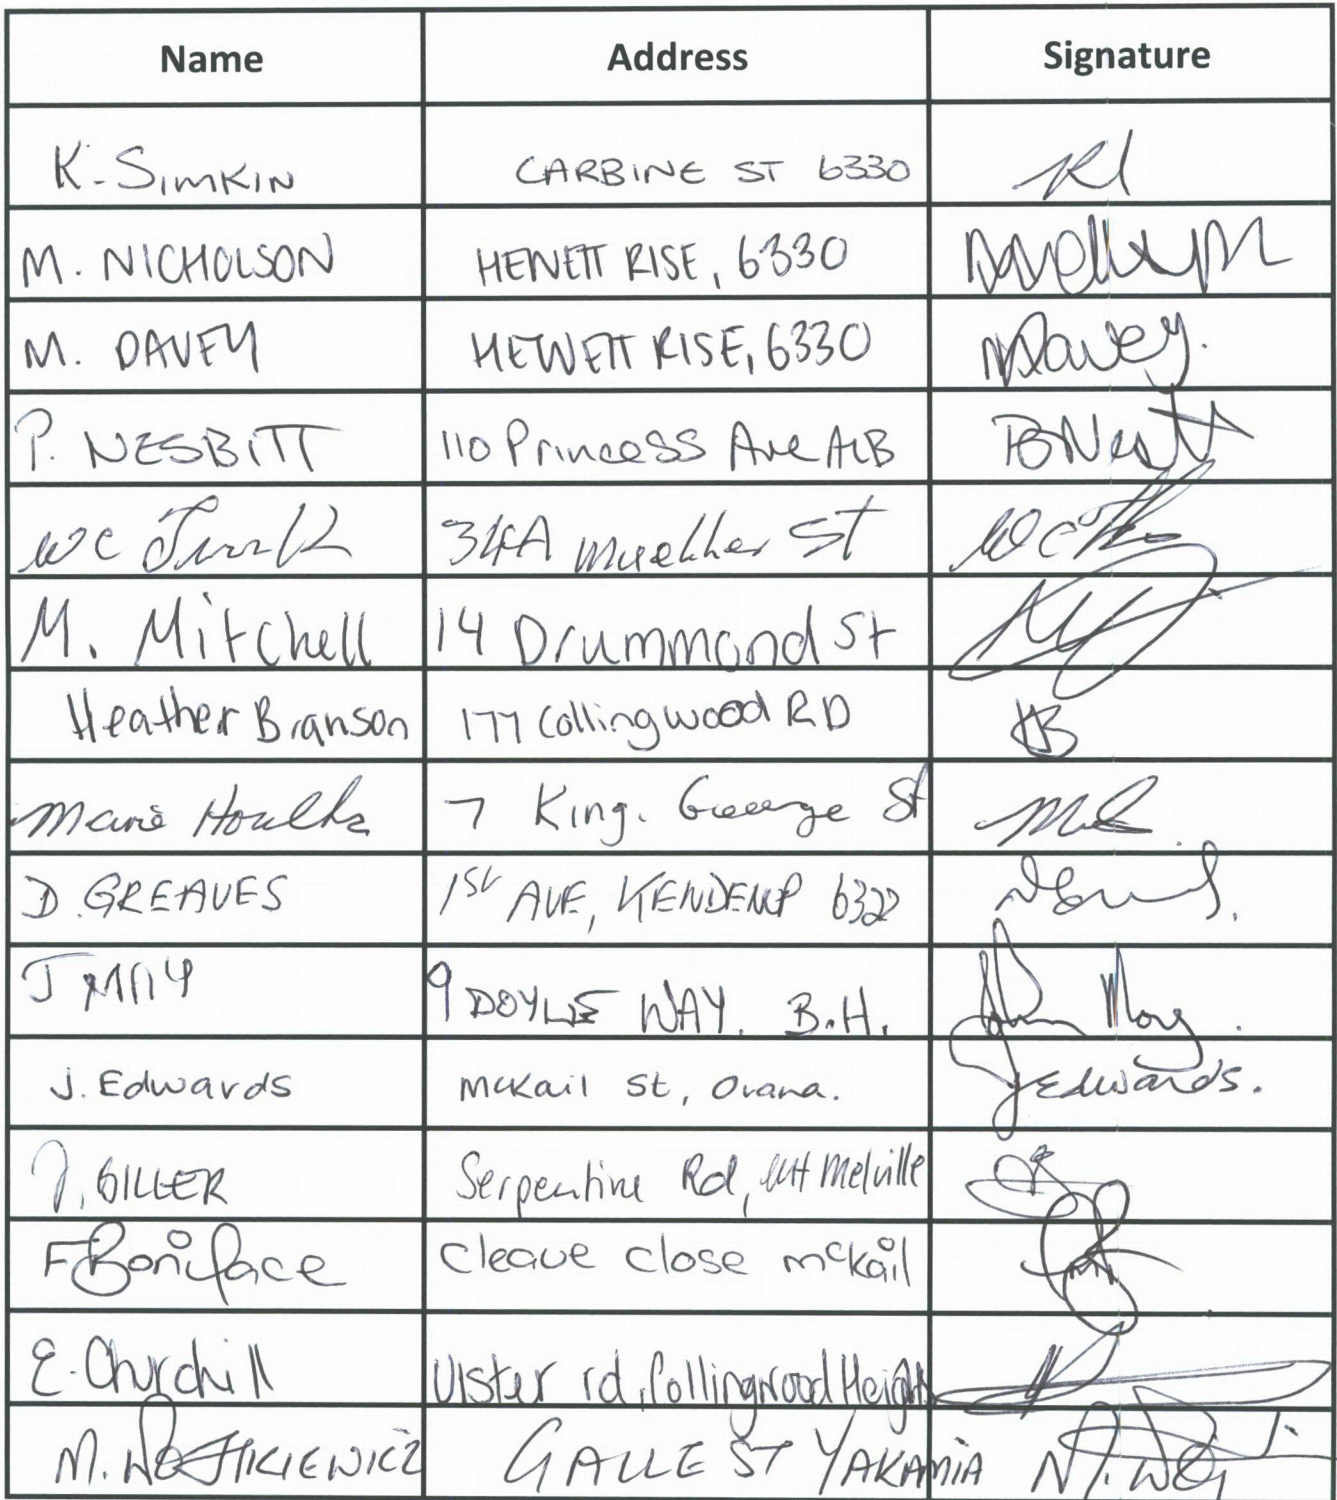 Name Address Signature
K. SIMKIN CARBINE ST 6330
M. NICHOLSON HEWETT RISE, 6330
M. DAVEY HEWETT RISE, 6330 MDavey.
P. NESBITT 110 Princess Ave ALB
WC 34A Mueller St WC
M. Mitchell 14 Drummond St
Heather Branson 177 Collingwood RD HB
Marie 7 King. George St
D. GREAVES 1st AVE, KENDENUP 6322
J MAY 9 DOYLE WAY. B.H. John May.
J. Edwards Mckail St, Orana. J Edwards.
J. GILLER Serpentine Rd, Mt Melville
F Boniface Cleave close mckail
E. Churchill Ulster rd, Collingwood Heights
M. GALLE ST YAKAMIA